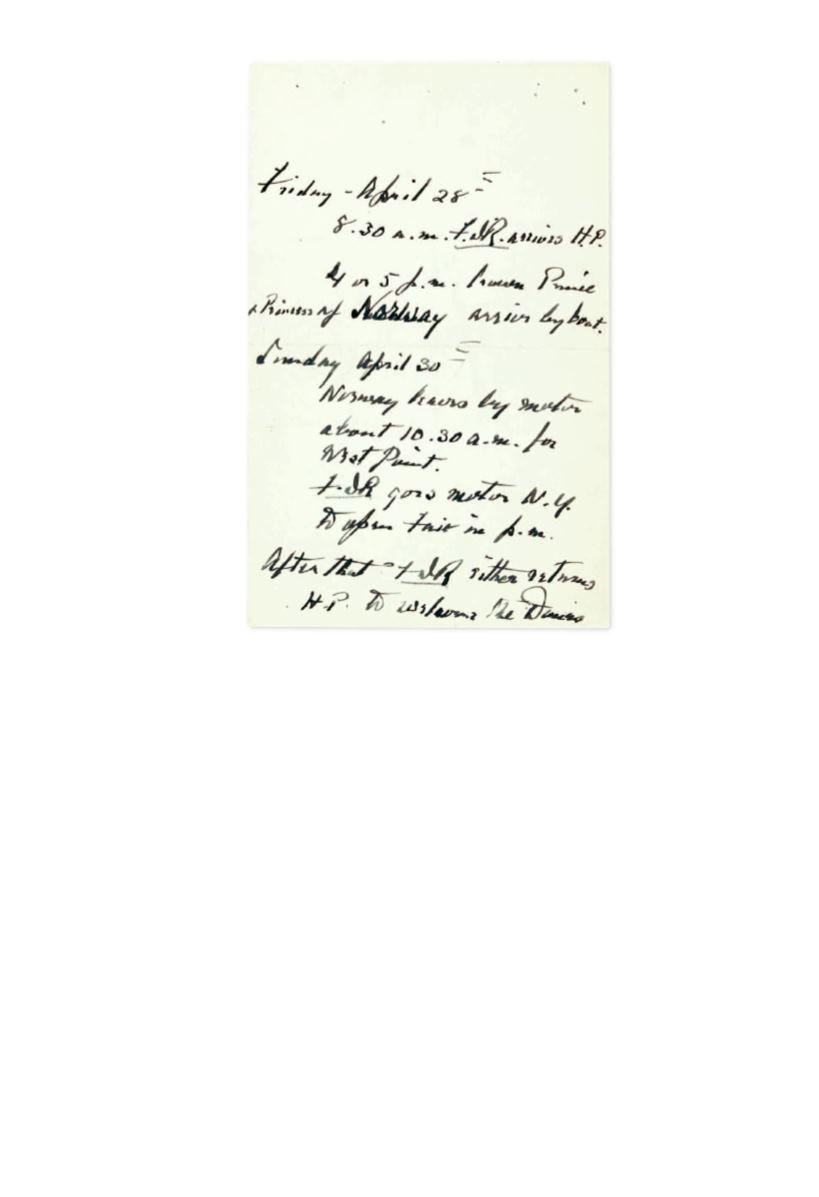 Friday - April 28th
8.30 a.m. F.D.R. arrives H.P.
4 or 5 p.m. Crown Prince
& Princess of Norway arrive by boat.
Sunday April 30th
Norway leaves by motor
about 10.30 a.m. for
West Point.
F.D.R goes motor N.Y.
to open Fair in p.m.
After that F.D.R either returns
H.P. to welcome the Danes